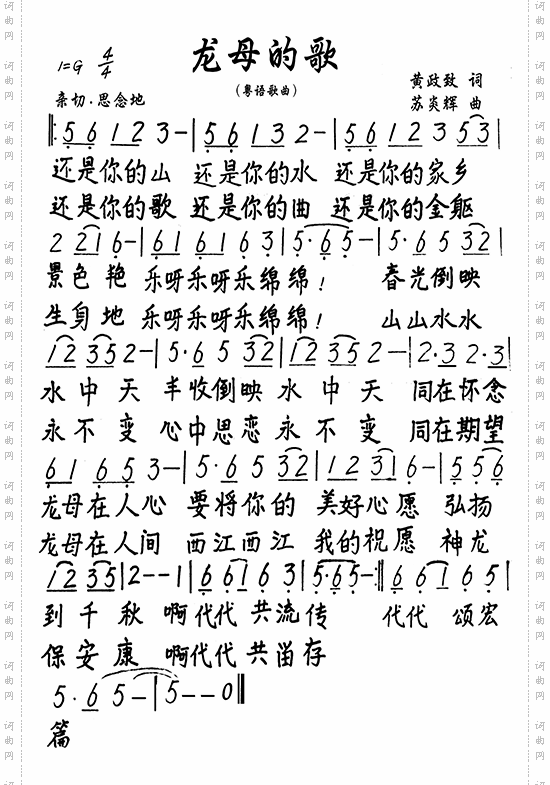 龙母的歌
1=G 4/4
(粤语歌曲)
黄政致 词
亲切·思念地
苏炎辉 曲
‖:5 6 1 2 3-|5 6 1 3 2-|5 6 1 2 3 5 3|
还是你的山 还是你的水 还是你的家乡
还是你的歌 还是你的曲 还是你的金躯
2 2 1 6-|6 1 6 1 6 3|5·6 5-|5·6 5 3 2|
景色 艳 乐呀乐呀乐绵绵! 春光倒映
生身 地 乐呀乐呀乐绵绵! 山山水水
1 2 3 5 2-|5·6 5 3 2|1 2 3 5 2-|2·3 2·3|
水 中 天 丰收倒映 水 中 天 同在怀念
永 不 变 心中思恋 永 不 变 同在期望
6 1 6 5 3-|5·6 5 3 2|1 2 3 1 6-|5 5 6|
龙母在人心 要将你的 美好心愿 弘扬
龙母在人间 西江西江 我的祝愿 神龙
1 2 3 5|2--1|6 6 1 6 3|5·6 5-:‖6 6 1 6 5|
到 千 秋 啊代代 共流传 代代 颂宏
保 安 康 啊代代 共留存
5·6 5-|5--0‖
篇
词曲网
词曲网
词曲网
词曲网
词曲网
词曲网
词曲网
词曲网
词曲网
词曲网
词曲网
词曲网